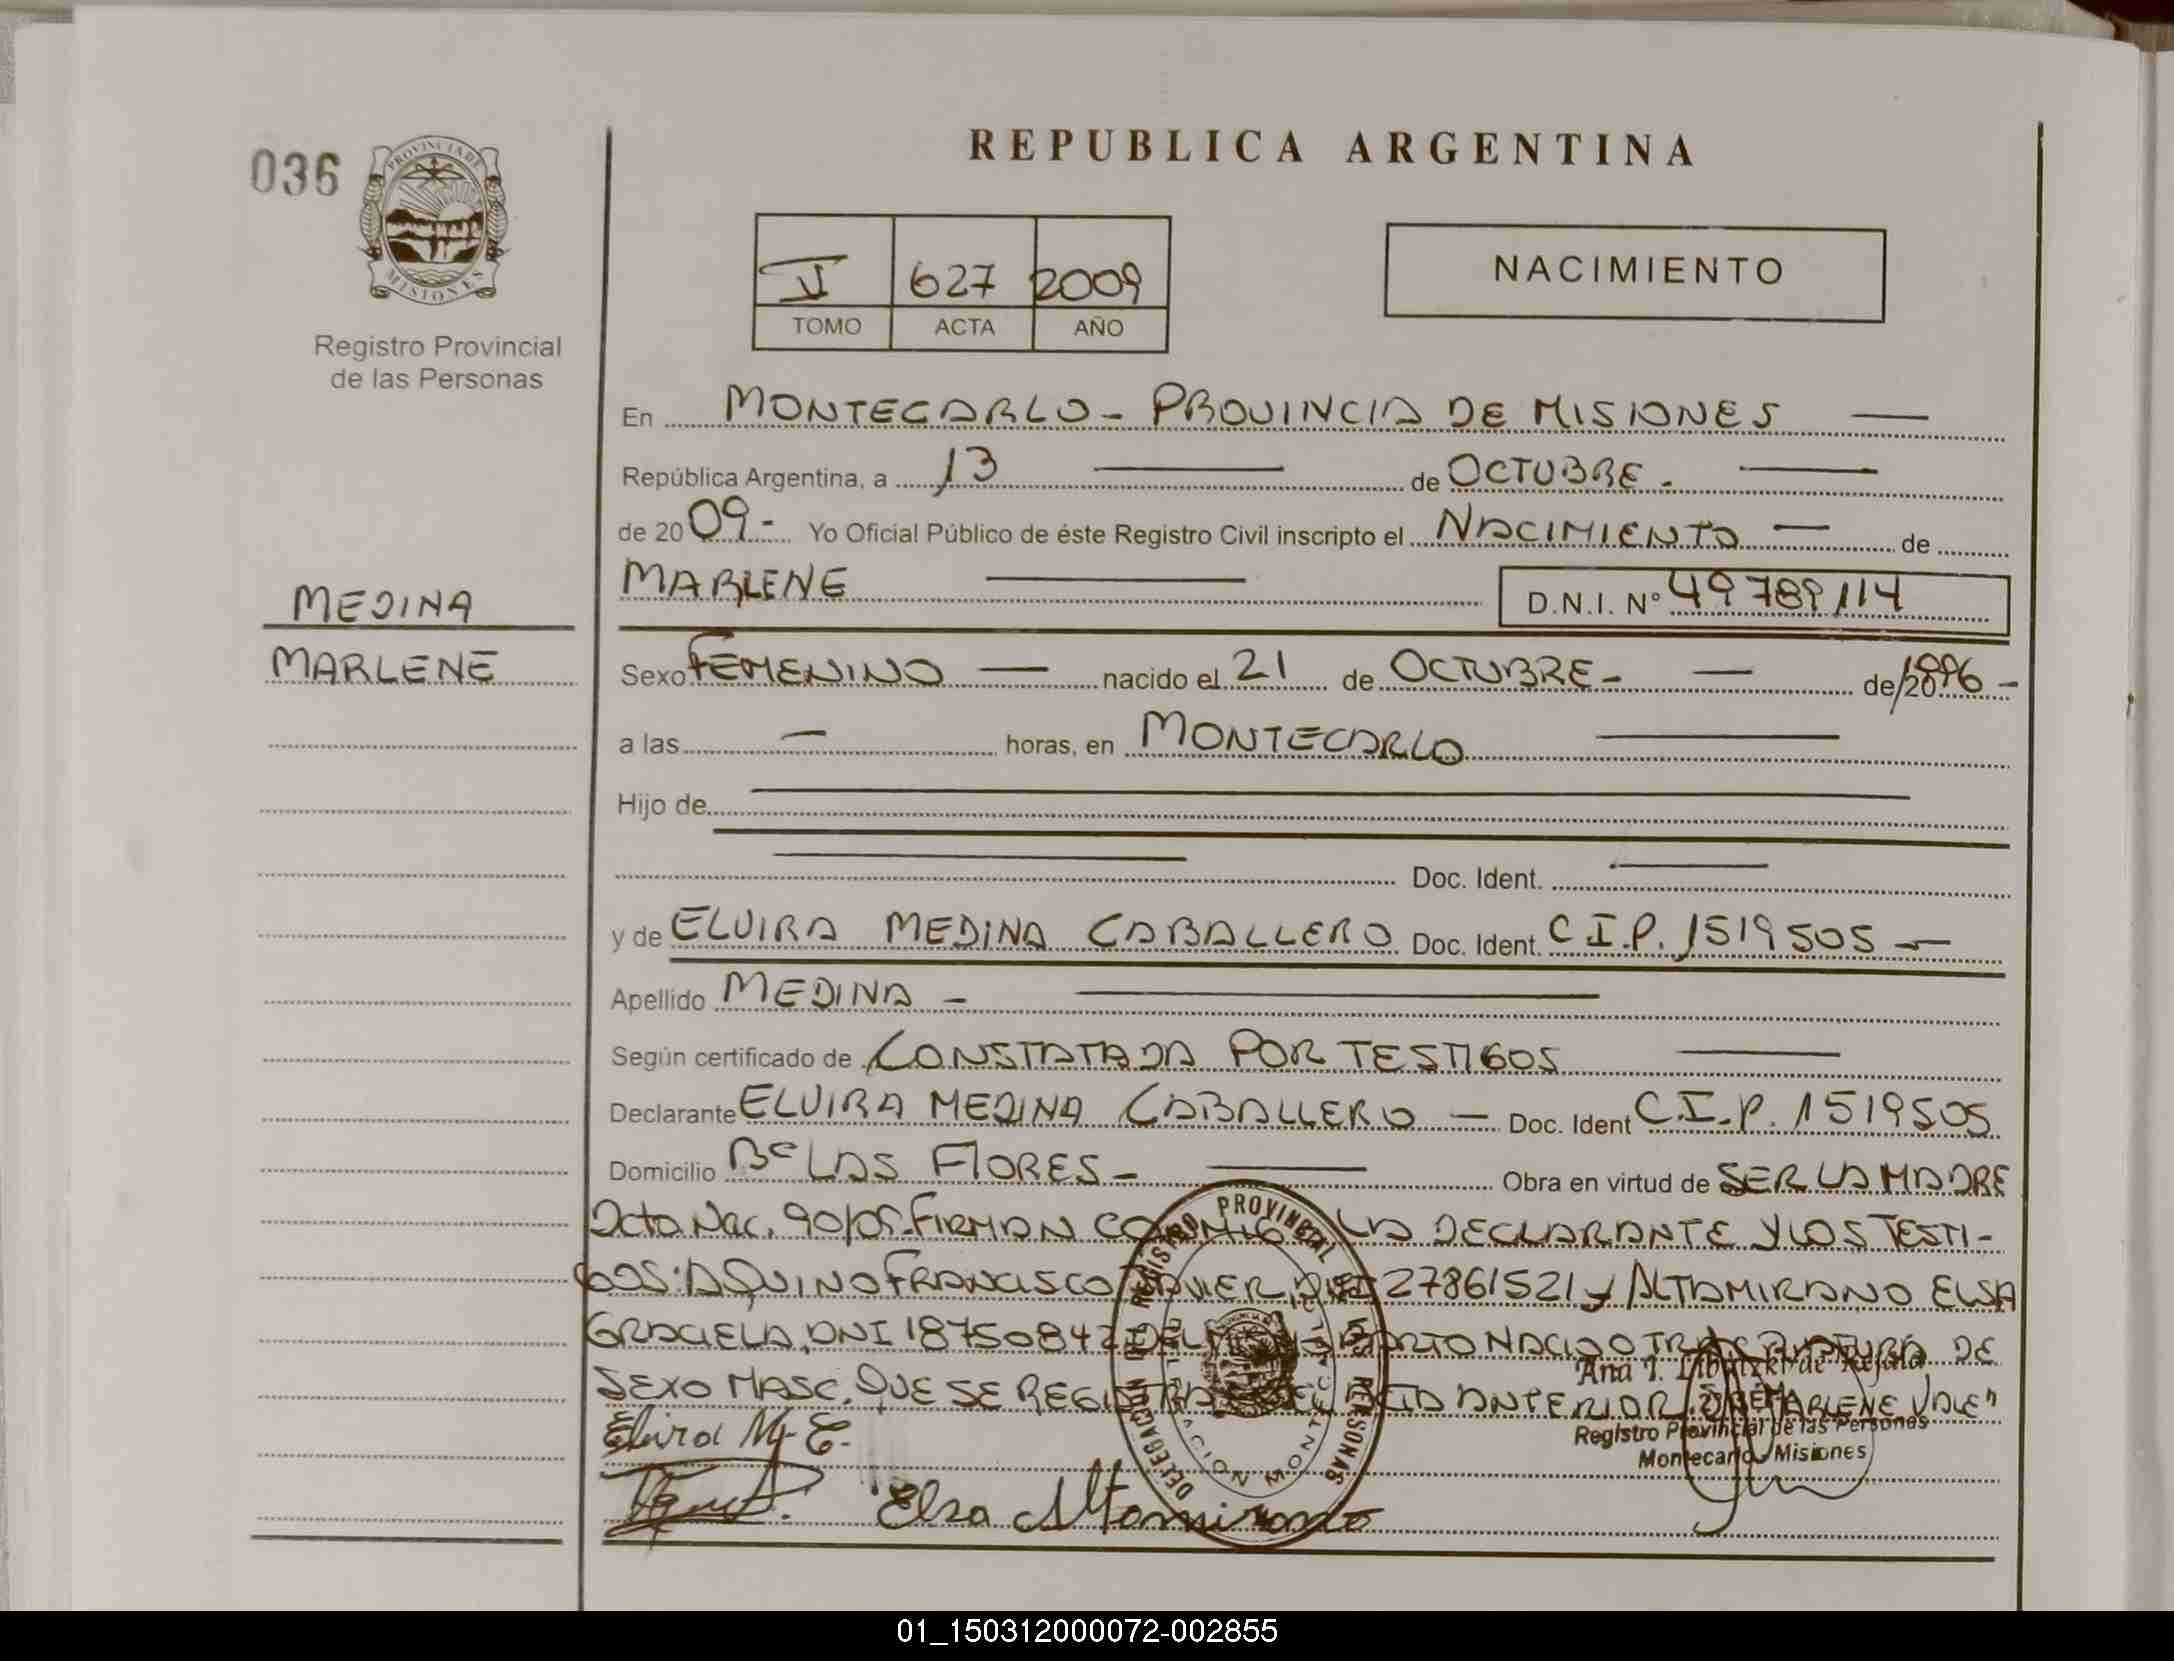 REPUBLICA ARGENTINA
036
PROVINCIA DE
MISIONES
Registro Provincial
de las Personas
V 627 2009
TOMO ACTA AÑO
NACIMIENTO
En MONTECARLO - PROVINCIA DE MISIONES —
República Argentina, a 13 — de OCTUBRE. —
de 2009.- Yo Oficial Público de éste Registro Civil inscripto el NACIMIENTO — de
MARLENE — D.N.I. N° 49789114
MEDINA
MARLENE
Sexo FEMENINO — nacido el 21 de OCTUBRE - — de/20 1996 -
a las — horas, en MONTECARLO —
Hijo de —
— Doc. Ident. —
y de ELVIRA MEDINA CABALLERO Doc. Ident. C.I.P. 1519505 —
Apellido MEDINA - —
Según certificado de CONSTATADA POR TESTIGOS —
Declarante ELVIRA MEDINA CABALLERO — Doc. Ident C.I.P. 1519505
Domicilio B° LAS FLORES - — Obra en virtud de SER LA MADRE
Dcto. Nac. 90/09. FIRMAN CONMIGO LA DECLARANTE Y LOS TESTI-
GOS: AQUINO FRANCISCO JAVIER DNI 27861521 y ALTAMIRANO ELSA
GRACIELA, DNI 18750842 DEL PARTO NACIO OTRA CRIATURA DE
SEXO MASC. QUE SE REGISTRA ACTA ANTERIOR. MARLENE VALE"
Elvira M. C.
Elsa Altamirano
DELEGACION DEL REGISTRO PROVINCIAL DE LAS PERSONAS
Ana I. de
Registro Provincial de las Personas
Montecarlo Misiones
01_150312000072-002855